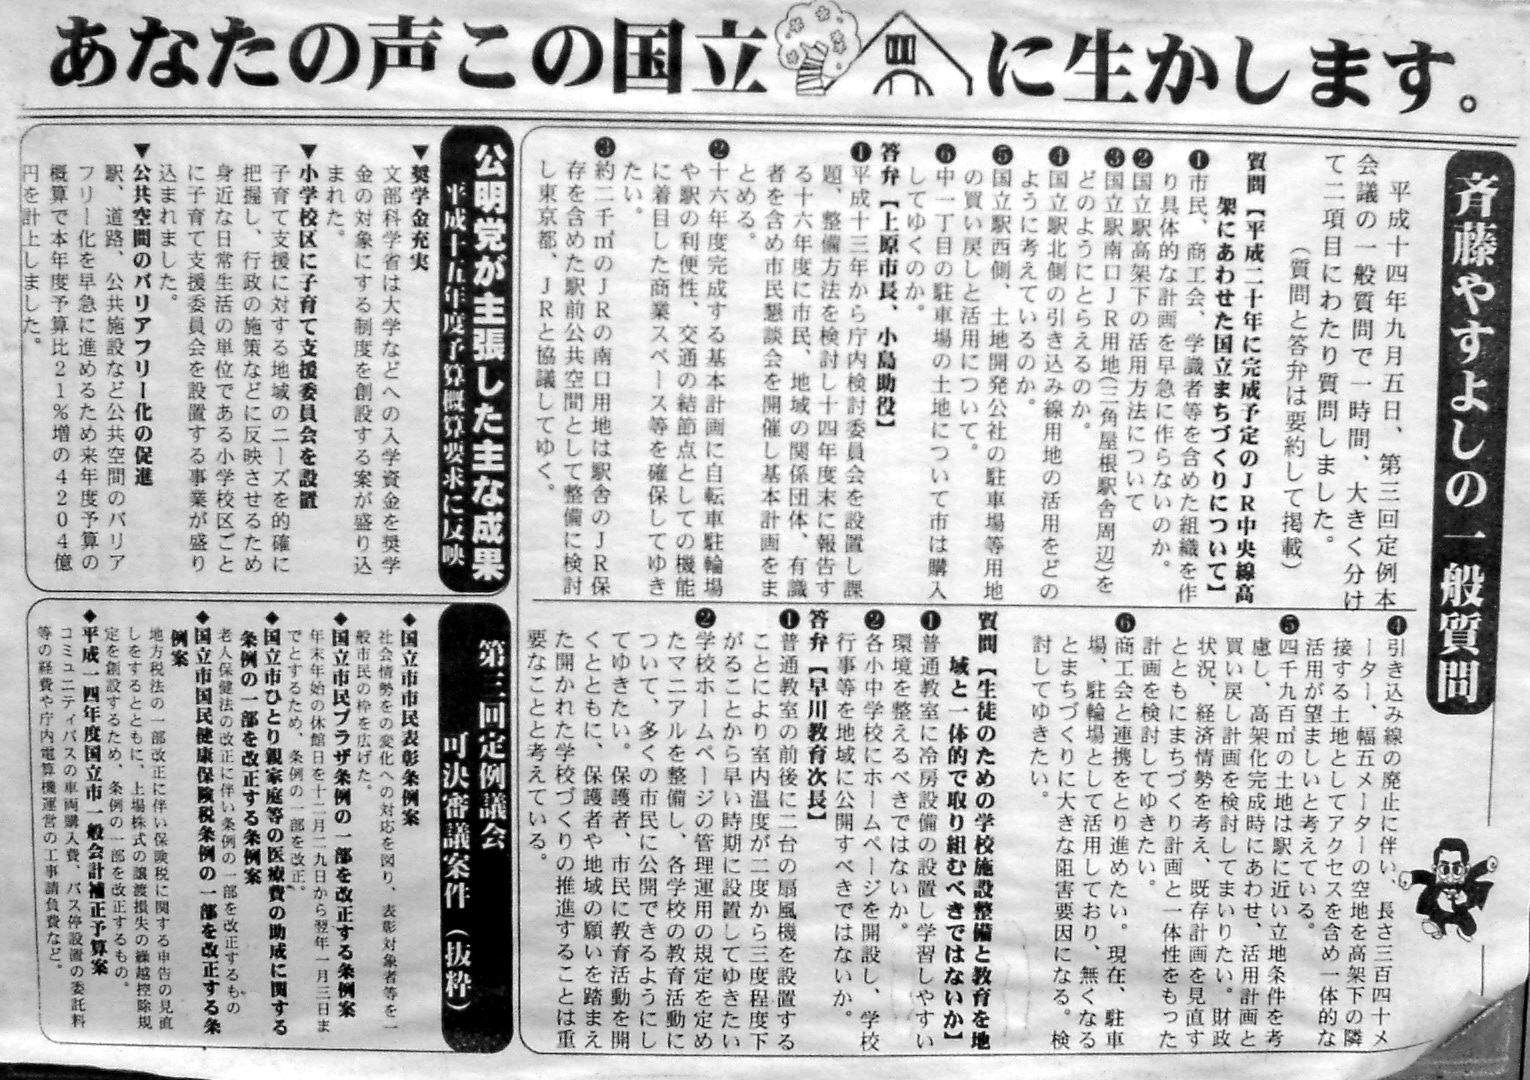 あなたの声この国立に生かします。
斉藤やすよしの一般質問
平成十四年九月五日、第三回定例本
会議の一般質問で一時間、大きく分け
て二項目にわたり質問しました。
（質問と答弁は要約して掲載）
質問【平成二十年に完成予定のJR中央線高
架にあわせた国立まちづくりについて】
❶市民、商工会、学識者等を含めた組織を作
り具体的な計画を早急に作らないのか。
❷国立駅高架下の活用方法について
❸国立駅南口JR用地（三角屋根駅舎周辺）を
どのようにとらえるのか。
❹国立駅北側の引き込み線用地の活用をどの
ように考えているのか。
❺国立駅西側、土地開発公社の駐車場等用地
の買い戻しと活用について。
❻中一丁目の駐車場の土地について市は購入
してゆくのか。
答弁【上原市長、小島助役】
❶平成十三年から庁内検討委員会を設置し課
題、整備方法を検討し十四年度末に報告す
る十六年度に市民、地域の関係団体、有識
者を含め市民懇談会を開催し基本計画をま
とめる。
❷十六年度完成する基本計画に自転車駐輪場
や駅の利便性、交通の結節点としての機能
に着目した商業スペース等を確保してゆき
たい。
❸約二千㎡のJRの南口用地は駅舎のJR保
存を含めた駅前公共空間として整備に検討
し東京都、JRと協議してゆく。
❹引き込み線の廃止に伴い、長さ三百四十メ
ーター、幅五メーターの空地を高架下の隣
接する土地としてアクセスを含め一体的な
活用が望ましいと考えている。
❺四千九百㎡の土地は駅に近い立地条件を考
慮し、高架化完成時にあわせ、活用計画と
買い戻し計画を検討してまいりたい。財政
状況、経済情勢を考え、既存計画を見直す
とともにまちづくり計画と一体性をもった
計画を検討してゆきたい。
❻商工会と連携をとり進めたい。現在、駐車
場、駐輪場として活用しており、無くなる
とまちづくりに大きな阻害要因になる。検
討してゆきたい。
質問【生徒のための学校施設整備と教育を地
域と一体的で取り組むべきではないか】
❶普通教室に冷房設備の設置し学習しやすい
環境を整えるべきではないか。
❷各小中学校にホームページを開設し、学校
行事等を地域に公開すべきではないか。
答弁【早川教育次長】
❶普通教室の前後に二台の扇風機を設置する
ことにより室内温度が二度から三度程度下
がることから早い時期に設置してゆきたい
❷学校ホームページの管理運用の規定を定め
たマニアルを整備し、各学校の教育活動に
ついて、多くの市民に公開できるようにし
てゆきたい。保護者、市民に教育活動を開
くとともに、保護者や地域の願いを踏まえ
た開かれた学校づくりの推進することは重
要なことと考えている。
公明党が主張した主な成果
平成十五年度予算概算要求に反映
▼奨学金充実
文部科学省は大学などへの入学資金を奨学
金の対象にする制度を創設する案が盛り込
まれた。
▼小学校区に子育て支援委員会を設置
子育て支援に対する地域のニーズを的確に
把握し、行政の施策などに反映させるため
身近な日常生活の単位である小学校区ごと
に子育て支援委員会を設置する事業が盛り
込まれました。
▼公共空間のバリアフリー化の促進
駅、道路、公共施設など公共空間のバリア
フリー化を早急に進めるため来年度予算の
概算で本年度予算比21％増の4204億
円を計上しました。
第三回定例議会
可決審議案件（抜粋）
◆国立市市民表彰条例案
社会情勢をの変化への対応を図り、表彰対象者等を一
般市民の枠を広げた。
◆国立市民プラザ条例の一部を改正する条例案
年末年始の休館日を十二月二九日から翌年一月三日ま
でとするため、条例の一部を改正。
◆国立市ひとり親家庭等の医療費の助成に関する
条例の一部を改正する条例案
老人保健法の改正に伴い条例の一部を改正するもの
◆国立市国民健康保険税条例の一部を改正する条
例案
地方税法の一部改正に伴い保険税に関する申告の見直
しをするとともに、上場株式の譲渡損失の繰越控除規
定を創設するため、条例の一部を改正するもの。
◆平成一四年度国立市一般会計補正予算案
コミュニティバスの車両購入費、バス停設置の委託料
等の経費や庁内電算機運営の工事請負費など。